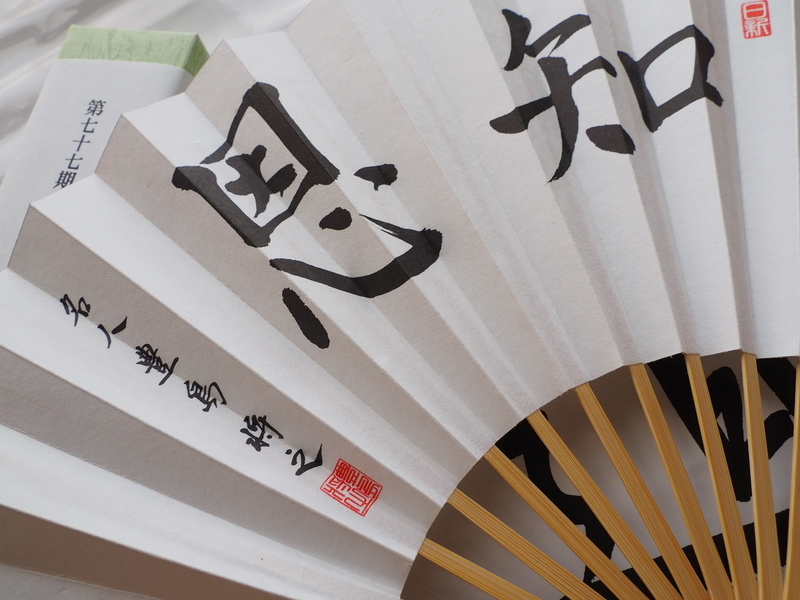 知恩
名人豊島将之
第七十七期
日新